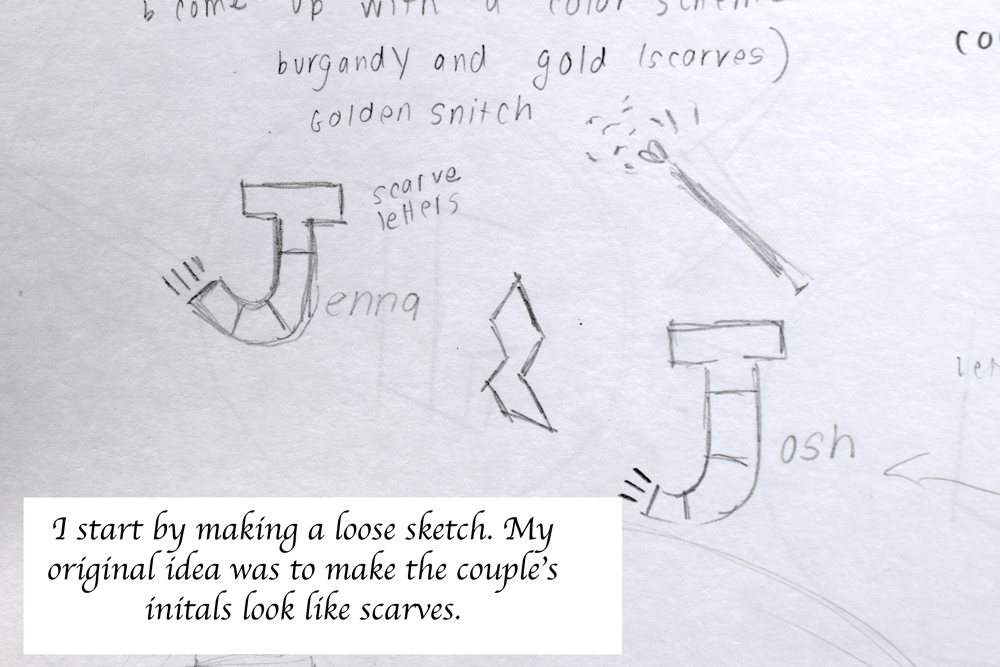 come up with a color scheme
burgandy and gold (scarves)
Golden Snitch
scarve
letters
Jenna
Josh
I start by making a loose sketch. My
original idea was to make the couple's
initals look like scarves.